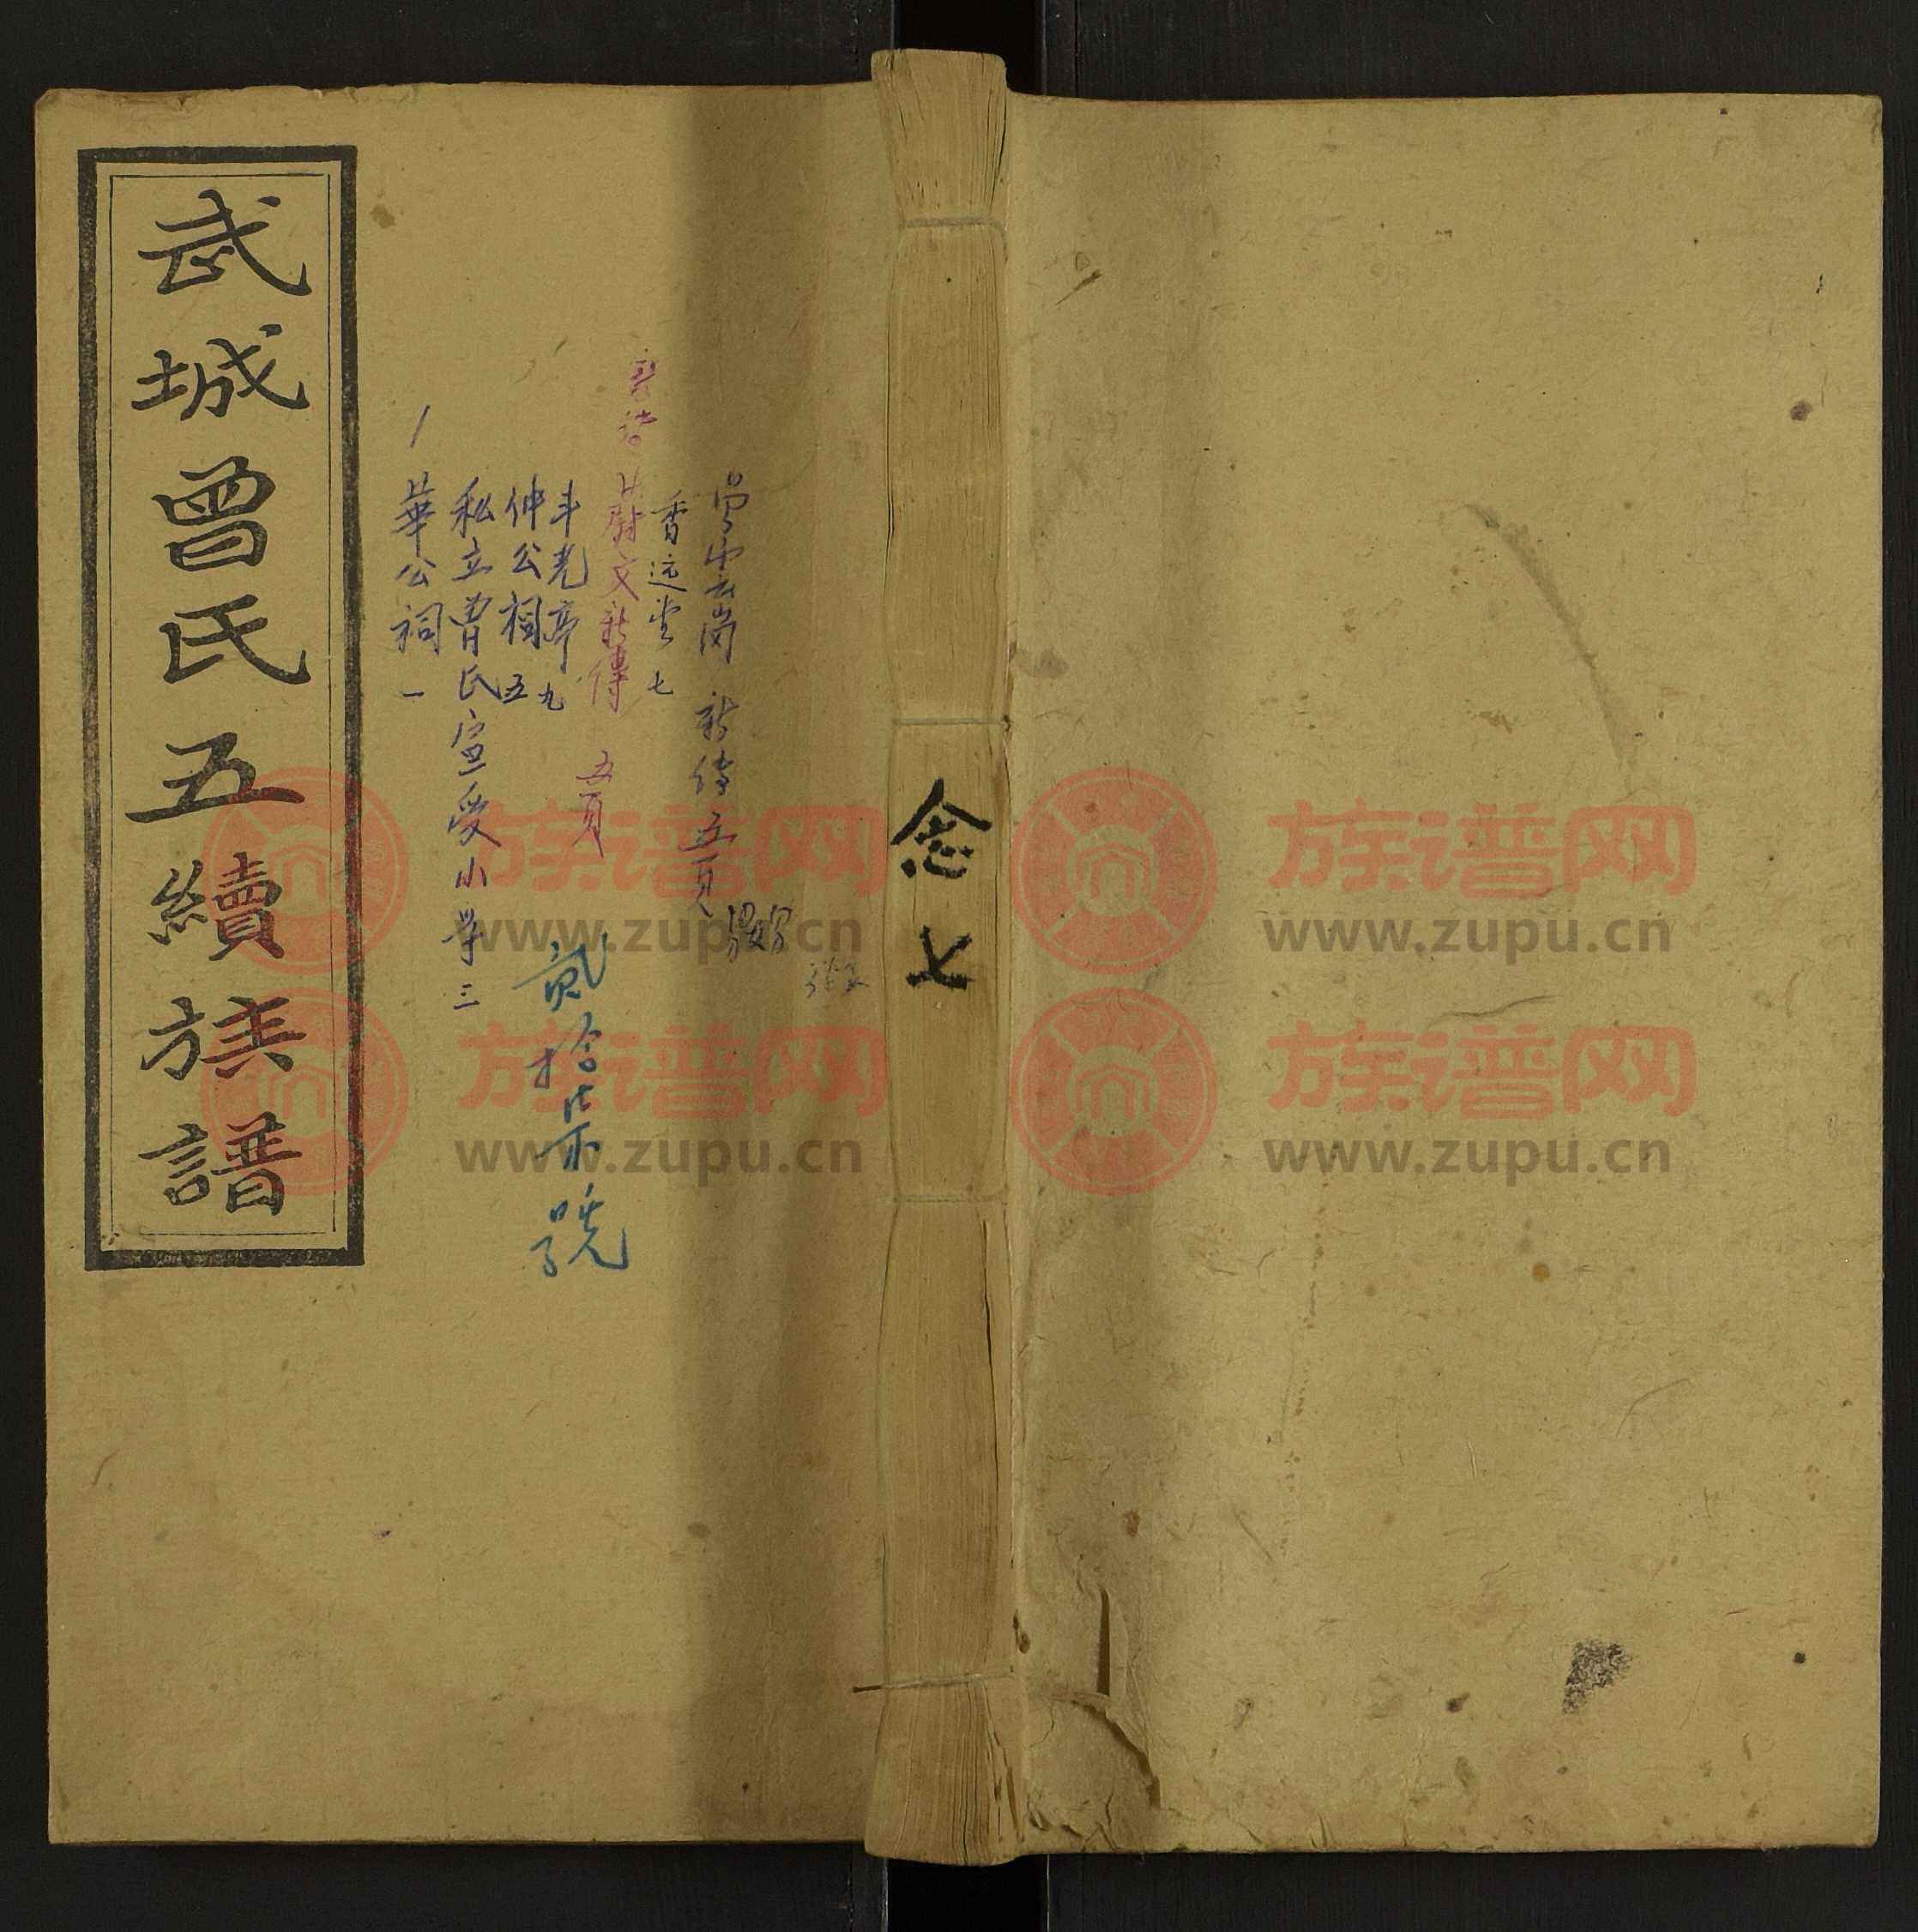 武城曾氏五續族譜
華公祠 一
私立曹氏宣受小学 三
仲公祠 五
斗光亭 九
蔚文新傳 五頁
香远堂 七
新傳五頁
貳拾柒號
念七
族谱网
www.zupu.cn
族谱网
www.zupu.cn
族谱网
www.zupu.cn
族谱网
www.zupu.cn